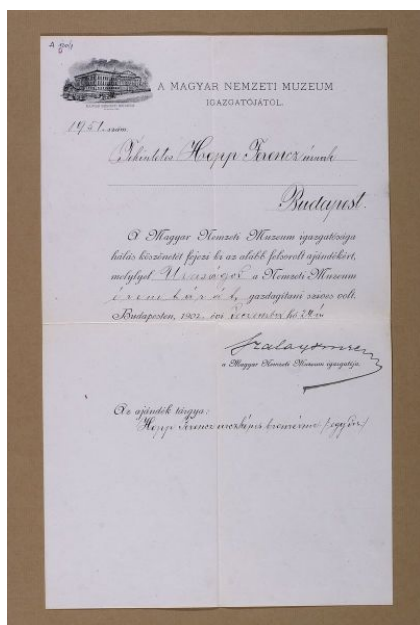 A MAGYAR NEMZETI MUZEUM
IGAZGATÓJÁTÓL.
1951. szám.
Tekintetes Hopp Ferencz úrnak
Budapest.
A Magyar Nemzeti Muzeum igazgatósága
hálás köszönetét fejezi ki az alább felsorolt ajándékért,
melylyel Uraságod a Nemzeti Muzeum
éremtárát gazdagítani szives volt.
Budapesten, 1902. évi hó 24-én
Szalay Imre
a Magyar Nemzeti Muzeum igazgatója.
Az ajándék tárgya:
Hopp Ferencz arczképes bronzérme